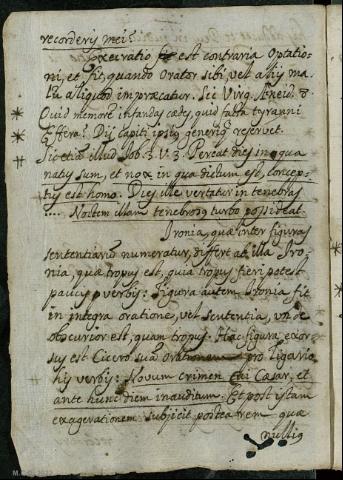 recorderis mei?
Execratio est contraria Optatio-
ni, et fit, quando Orator sibi, vel aliis ma-
la aliquod impræcatur. Sic Virg. Æneid. 8.
Quid memorē infandas cædes, quid facta tyranni
Effera? Dii capiti ipsius generiq reservet.
Sic etiā illud Job. 3. v. 3. Pereat dies in qua
natus sum, et nox in qua dictum est, concep-
tus est homo. Dies ille vertatur in tenebras
.... Noctem illam tenebrosq turbo possideat.
Ironia, quæ inter figuras
sententiarū numeratur, differt ab illa Iro-
nia, quæ tropus est, quia tropus fieri potest
paucis verbis: Figura autem Ironia fit
in integra oratione, vel sententia, unde
obscurior est, quam tropus. Hac figura exor-
sus est Cicero suā orationem pro Ligario
his verbis: Novum crimen Cai Cæsar, et
ante hunc diem inauditum. Et post istam
exagerationem subjicit postea rem quæ
nullius